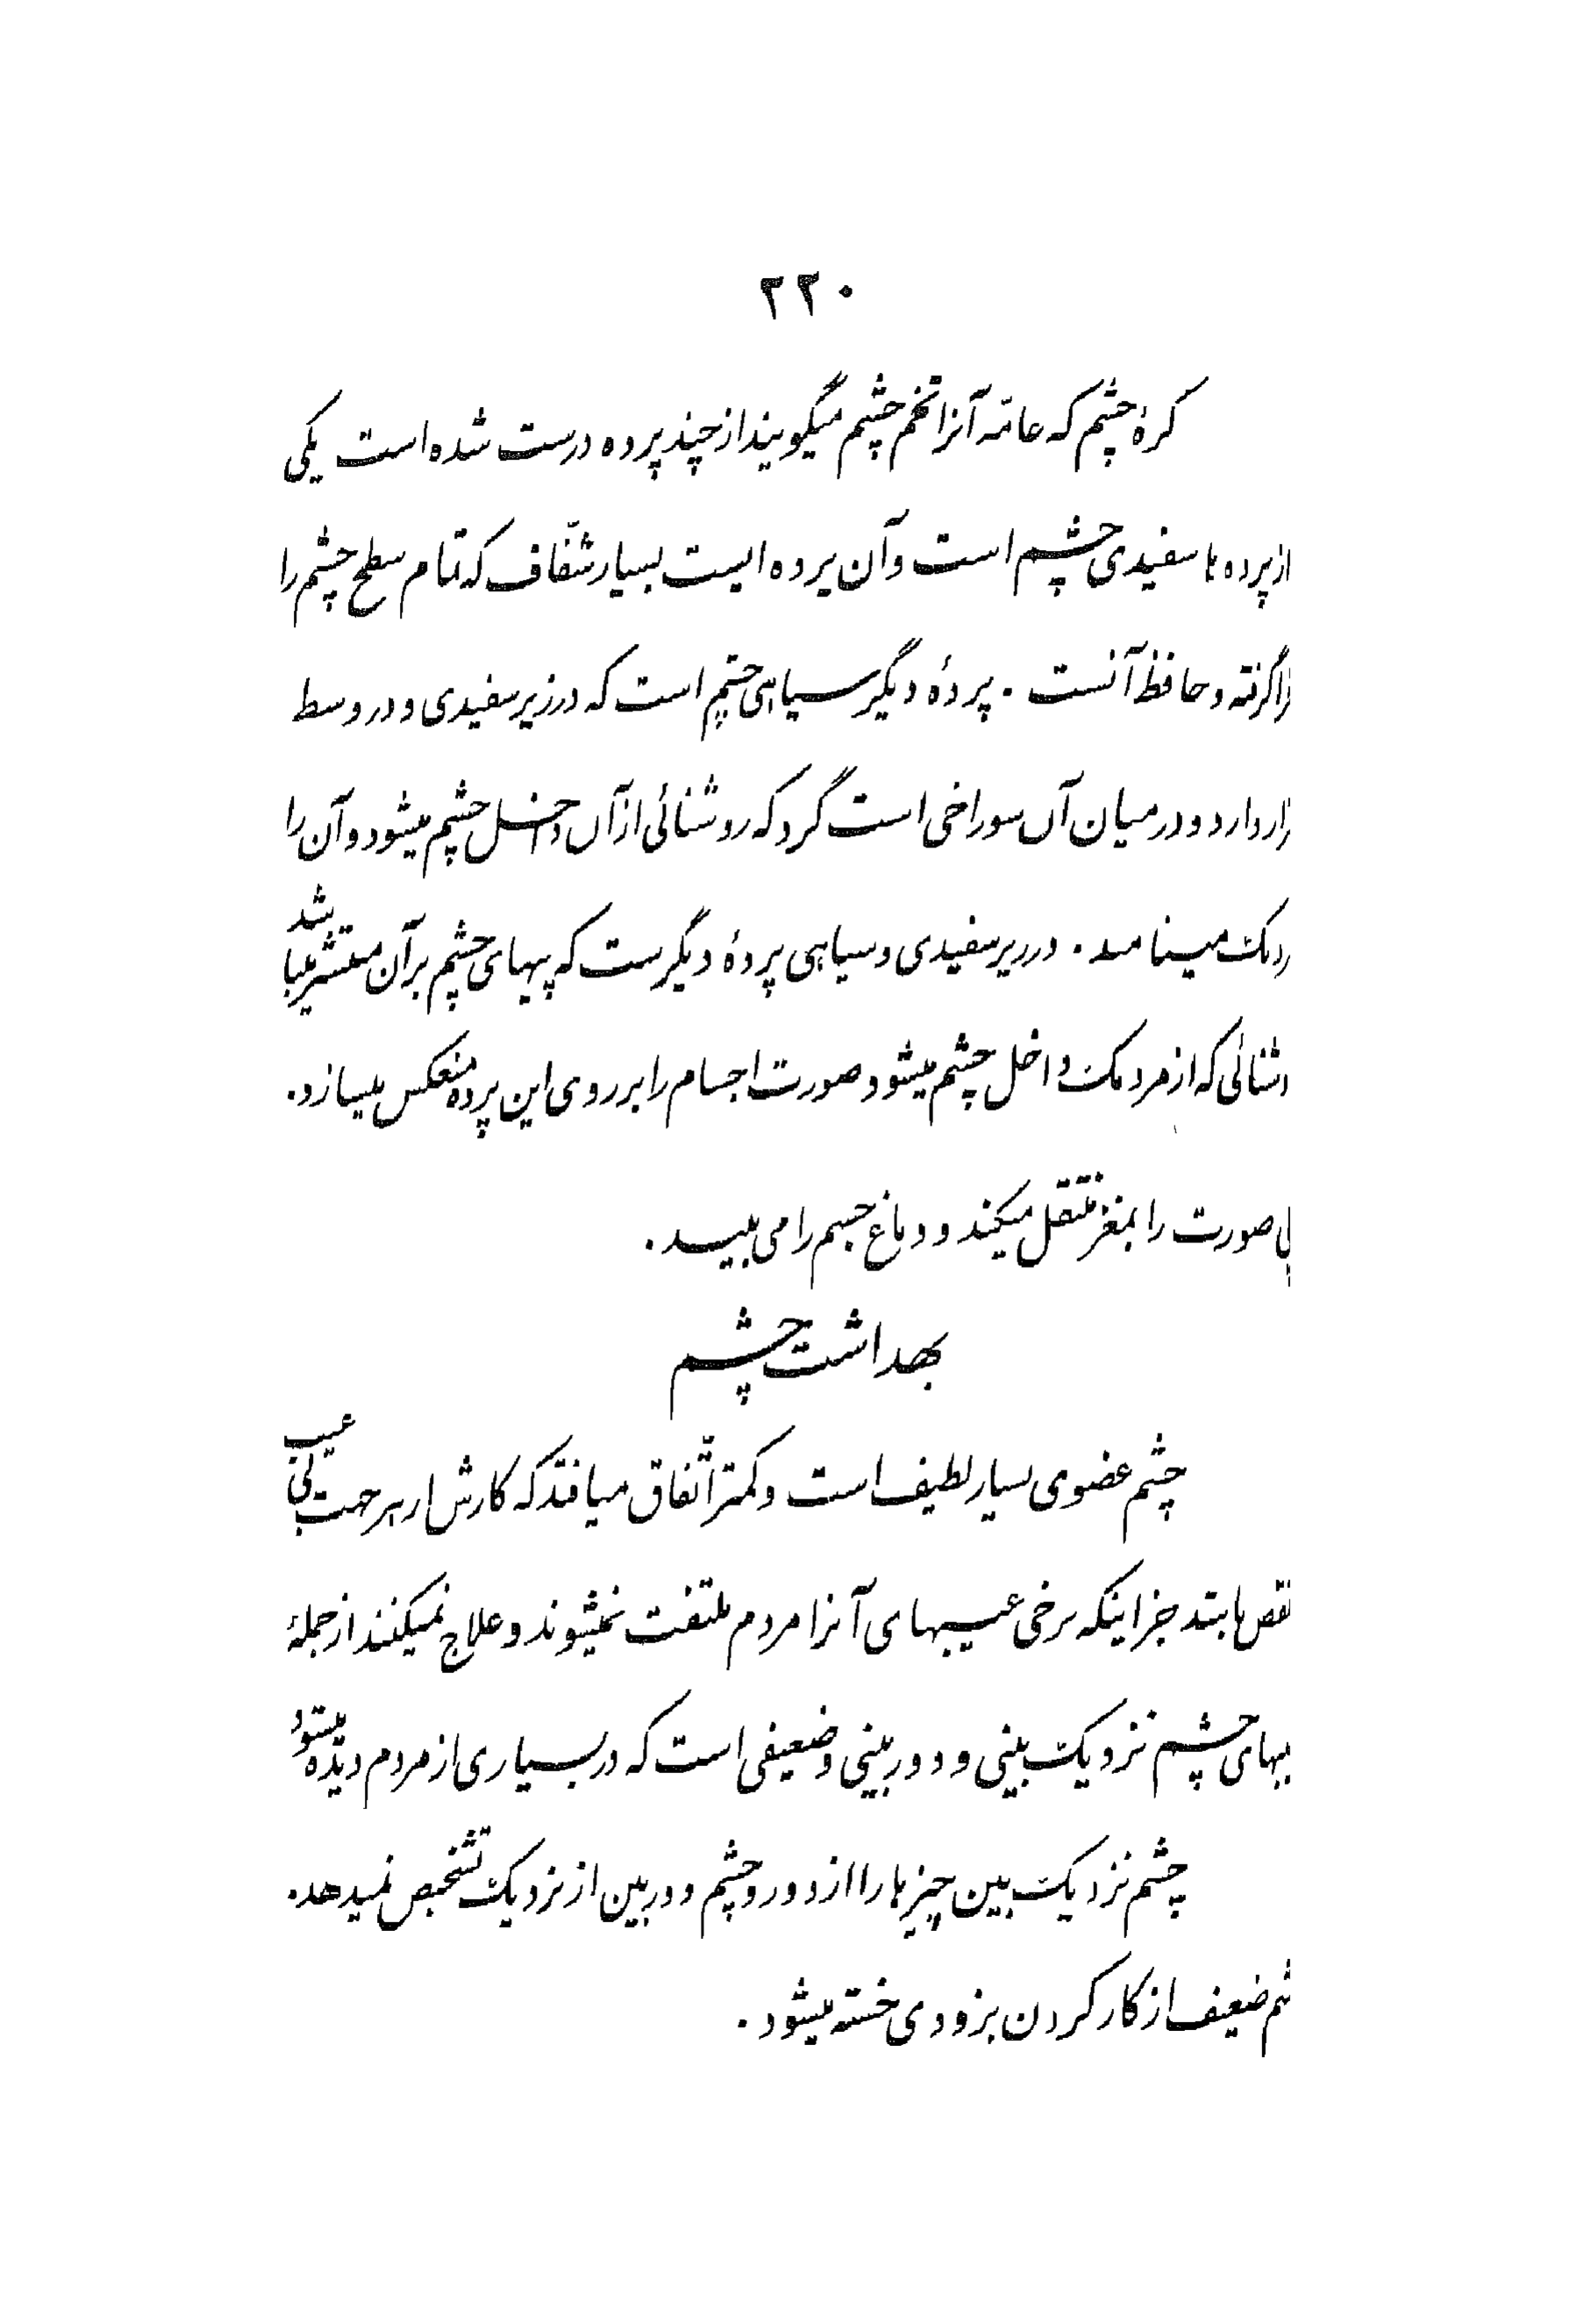 ۲۲۰
کرهٔ چشم که عامّه آنرا تخم چشم میگویند از چند پرده درست شده است یکی
از پرده ها سفیدی چشم است و آن پرده ایست بسیار شفّاف که تمام سطح چشم را
گرفته و حافظ آنست . پردهٔ دیگر سیاهی چشم است که در زیر سفیدی و در وسط
قرار دارد و در میان آن سوراخی است گرد که روشنائی از آن داخل چشم میشود و آن را
مینامند . در زیر سفیدی و سیاهی پردهٔ دیگرست که پیهای چشم بر آن منتشر میباشد
که از مردمک داخل چشم میشود صورت اجسام را بر روی این پرده منعکس میسازد .
صورت را بمغز منتقل میکند و دماغ جسم را می بیند .
بهداشت چشم
چشم عضوی بسیار لطیف است و کمتر اتّفاق میافتد که کارش از هر جهت بی عیب
نقص باشد جز اینکه برخی عیبهای آنرا مردم ملتفت نمیشوند و علاج نمیکنند از جملهٔ
چشم نزدیک بینی و دوربینی و ضعیفی است که در بسیاری از مردم دیده میشود
چشم نزدیک بین چیزها را از دور و چشم دوربین از نزدیک تشخیص نمیدهد .
ضعیف از کار کردن بزودی خسته میشود .